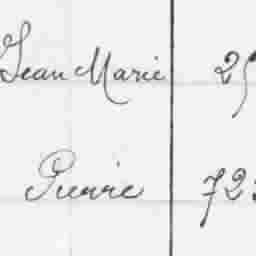 Jean Marie 25
Pierre 72